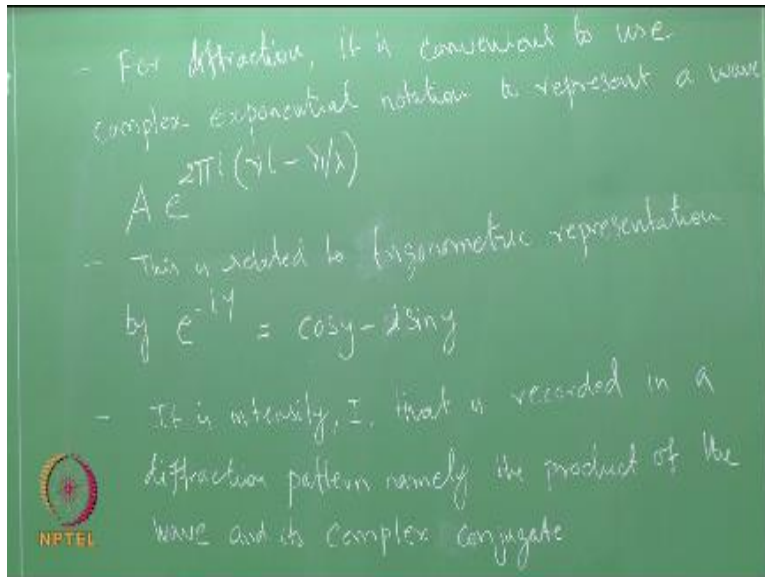 - For diffraction, it is convenient to use
complex exponential notation to represent a wave
A e^2πi(νt - x/λ)
- This is related to trigonometric representation
by e^-iy = cosy - i siny
- It is intensity, I, that is recorded in a
diffraction pattern namely the product of the
wave and its complex conjugate
NPTEL